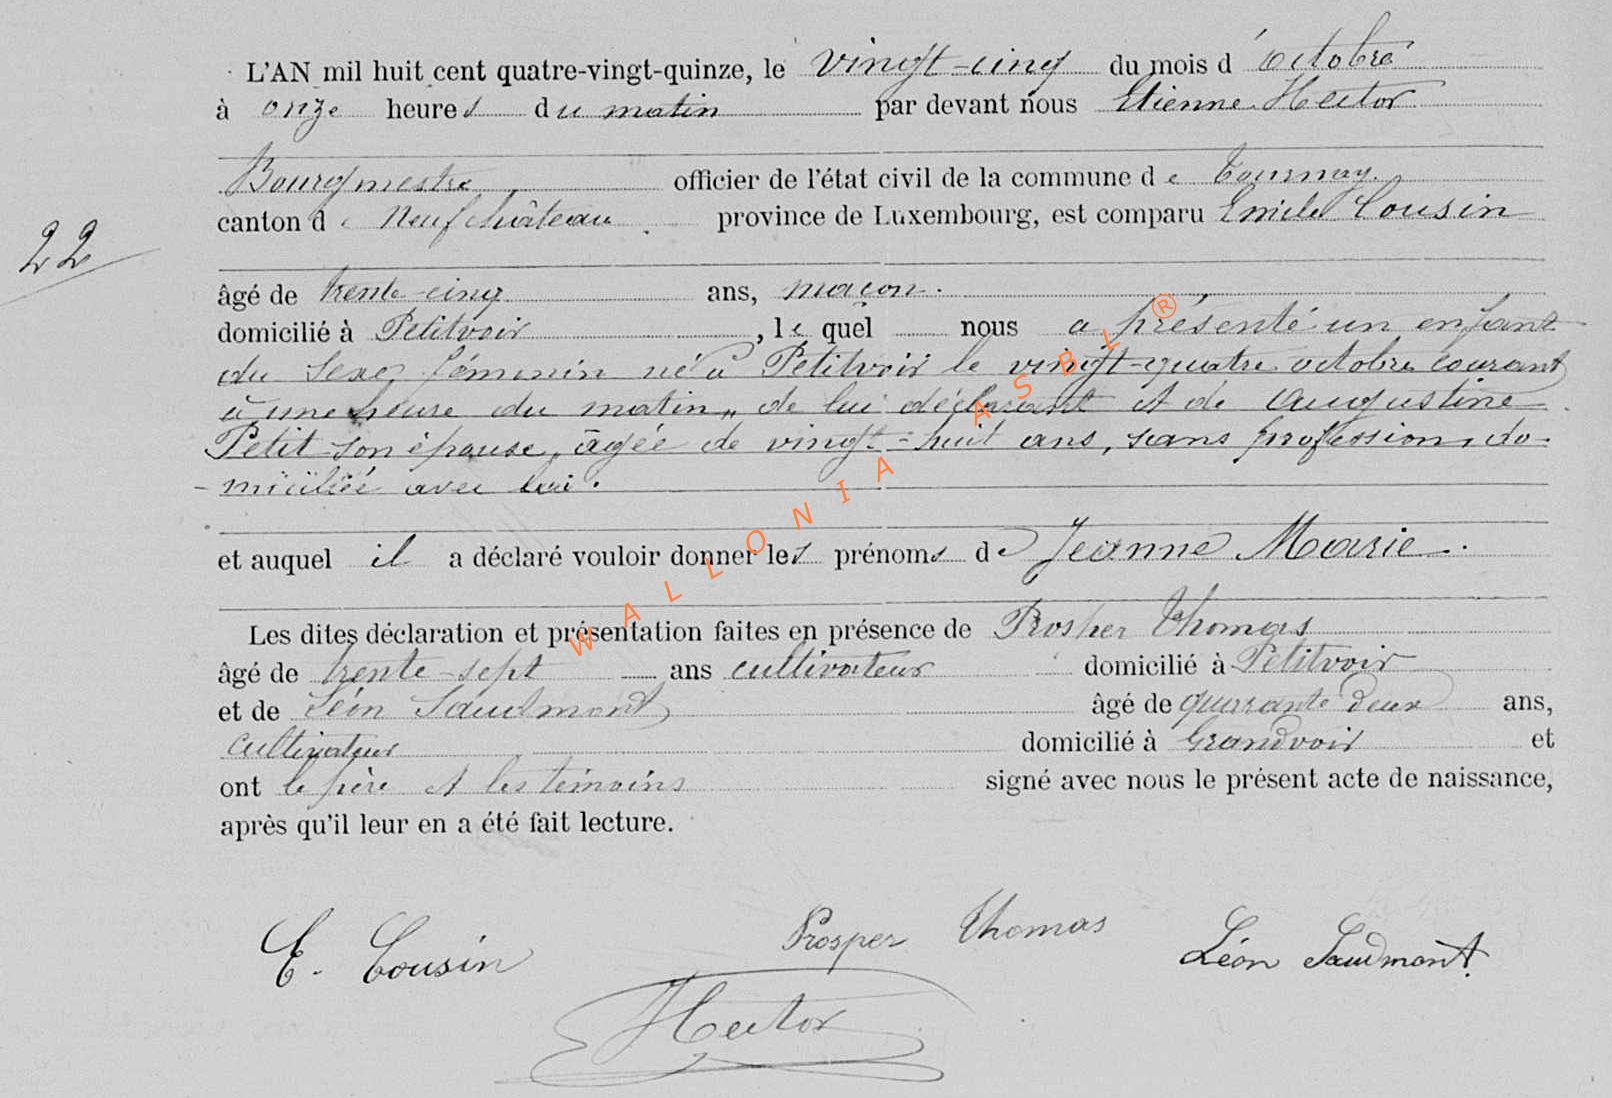 L'AN mil huit cent quatre-vingt-quinze, le vingt-cinq du mois d'octobre
à onze heures du matin par devant nous Etienne Hector
Bourgmestre officier de l'état civil de la commune de Tournay.
canton de Neufchâteau province de Luxembourg, est comparu Emile Cousin
22
âgé de trente-cinq ans, maçon.
domicilié à Petitvoir, le quel nous a présenté un enfant
du sexe féminin né à Petitvoir le vingt-quatre octobre courant
à une heure du matin, de lui déclarant et de Augustine
Petit son épouse, âgée de vingt-huit ans, sans profession, do-
-miciliée avec lui.
et auquel il a déclaré vouloir donner les prénoms de Jeanne Marie.
Les dites déclaration et présentation faites en présence de Prosper Thomas
âgé de trente-sept ans cultivateur domicilié à Petitvoir
et de Léon Saudmont âgé de quarante deux ans,
cultivateur domicilié à Grandvoir et
ont le père et les témoins signé avec nous le présent acte de naissance,
après qu'il leur en a été fait lecture.
E. Cousin Prosper Thomas Léon Saudmont
Hector
WALLONIA ASBL ®